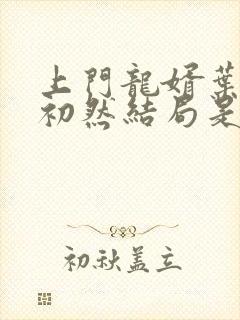 上門龍婿葉
初然結局是
初秋盖立